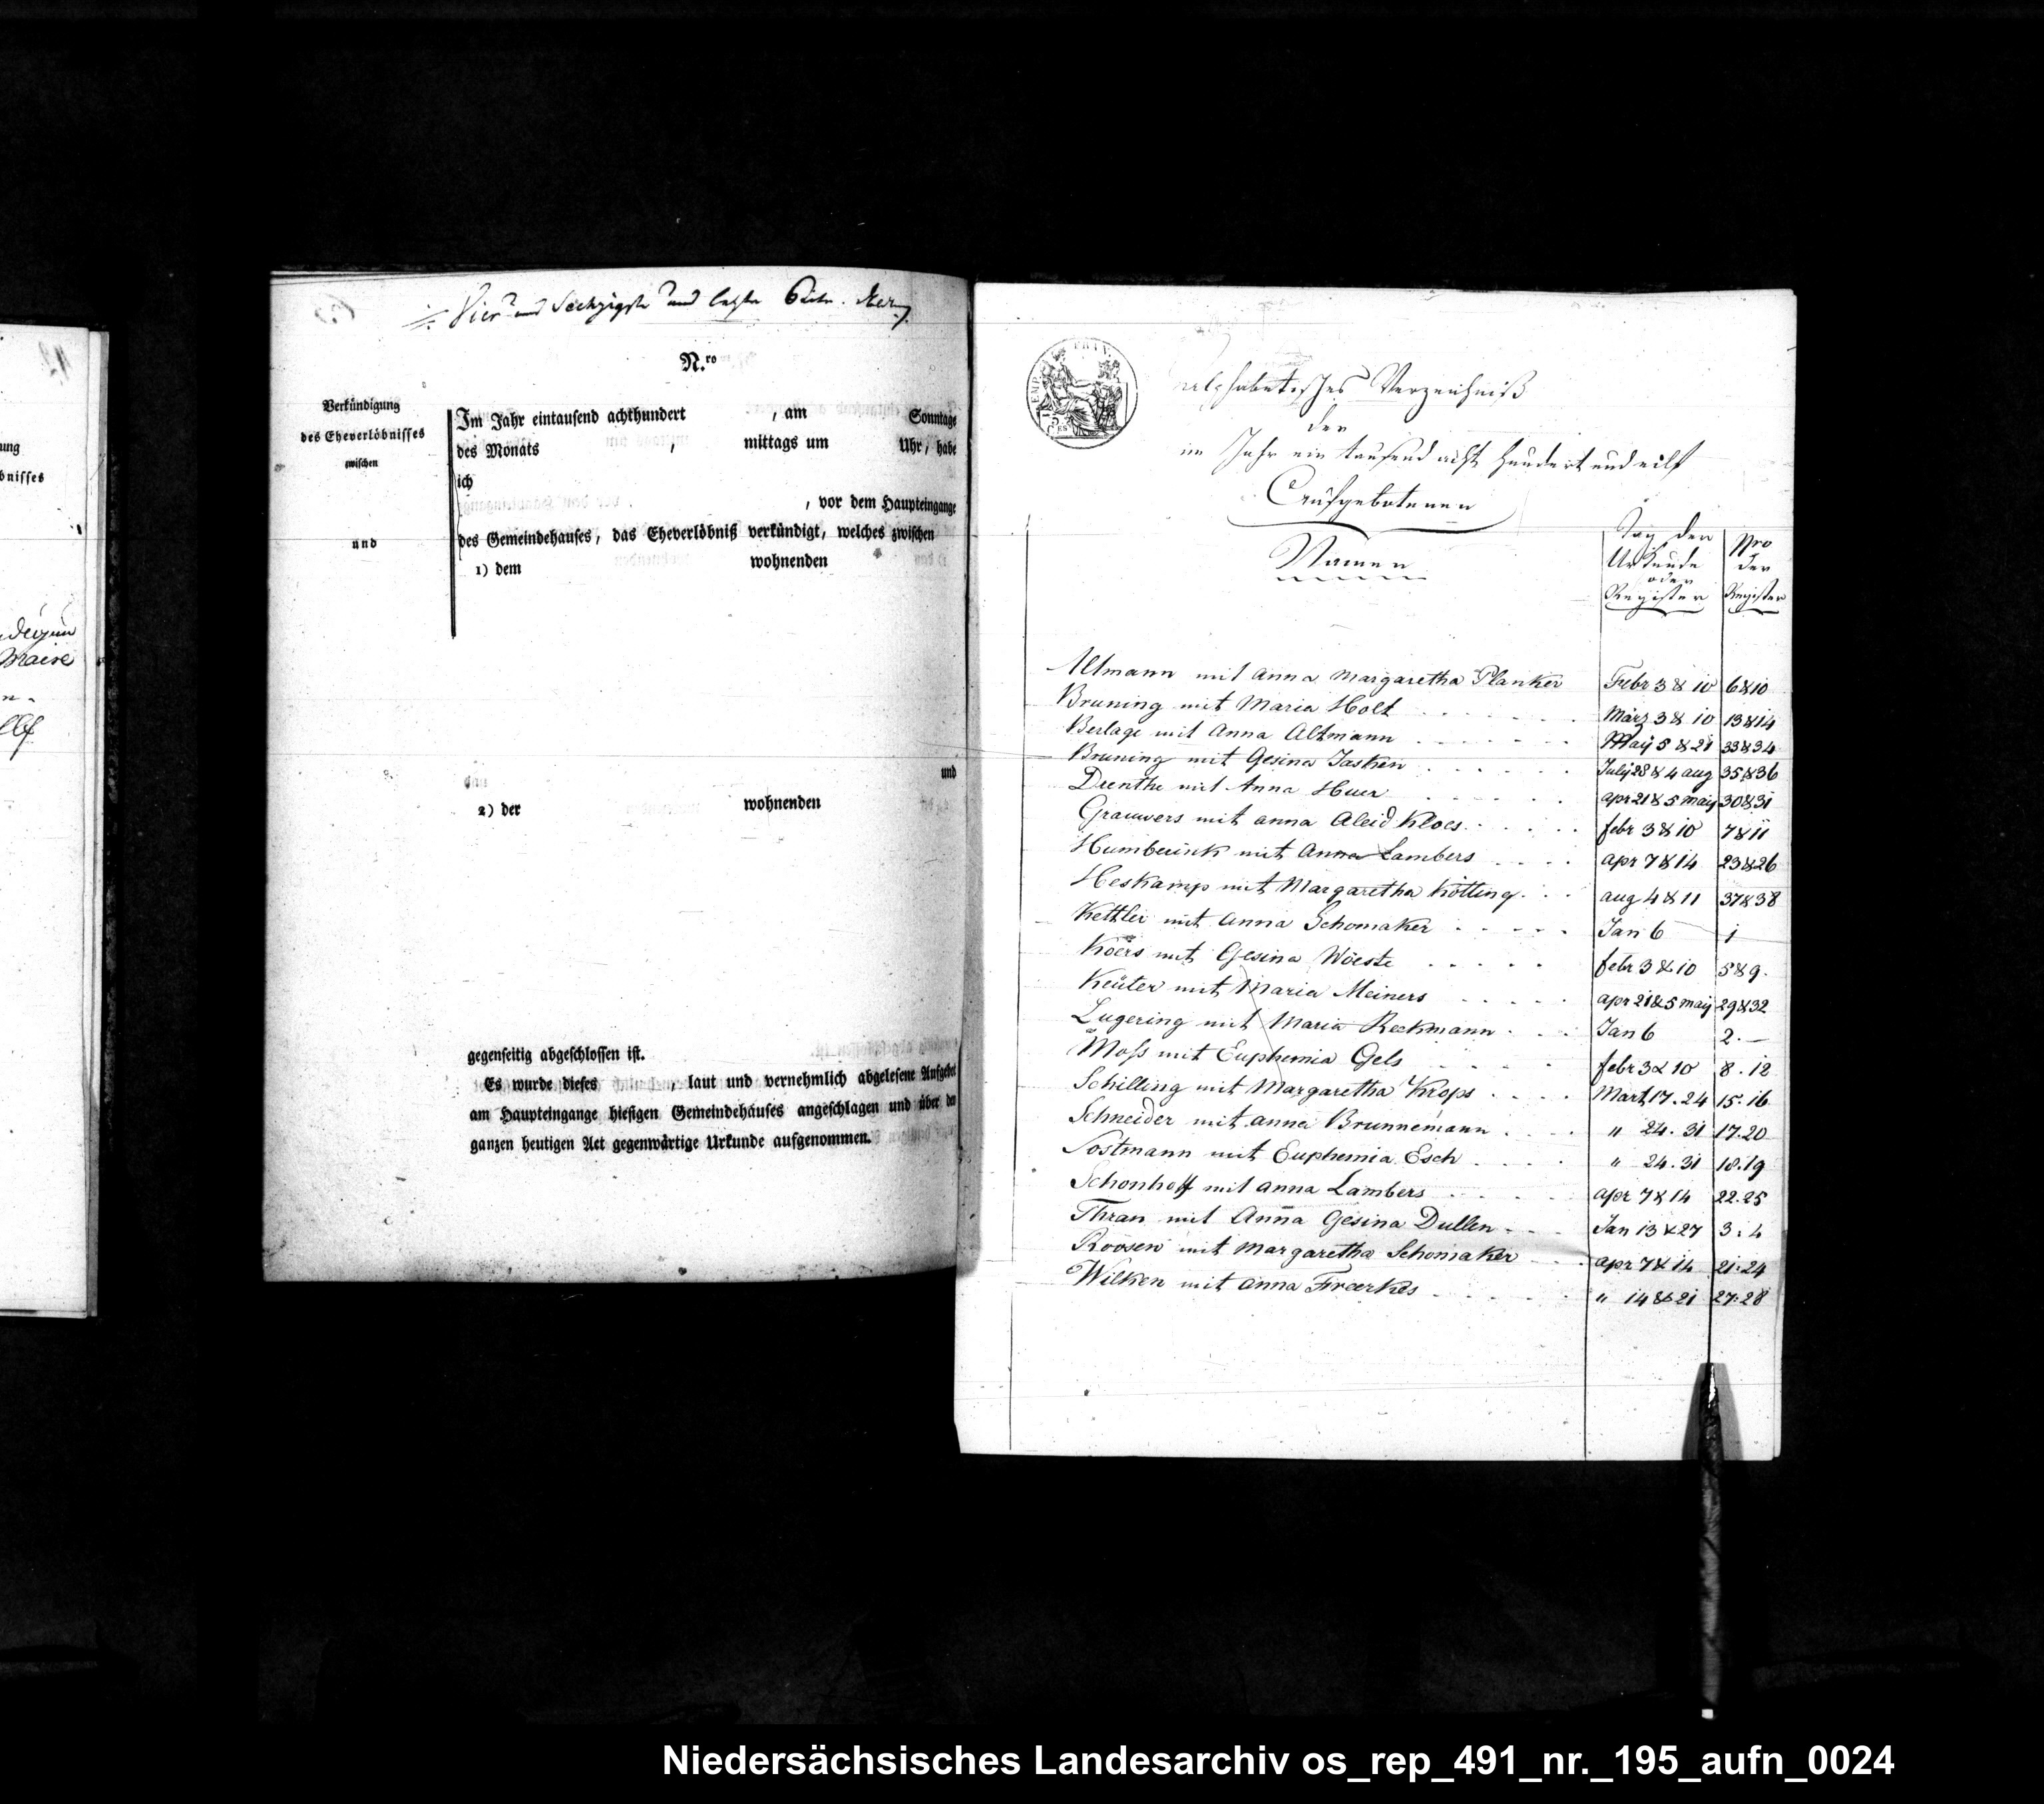 ung
bnisses
Maire
Vier und Sechzigste und letzte Seite.
N.ro
Verkündigung
des Eheverlöbnisses
zwischen
und
Im Jahr eintausend achthundert , am Sonntage
des Monats , mittags um Uhr, habe
ich
, vor dem Haupteingange
des Gemeindehauses, das Eheverlöbniß verkündigt, welches zwischen
1) dem wohnenden
und
2) der wohnenden
gegenseitig abgeschlossen ist.
Es wurde dieses , laut und vernehmlich abgelesene Aufgebot
am Haupteingange hiesigen Gemeindehauses angeschlagen und über den
ganzen heutigen Act gegenwärtige Urkunde aufgenommen.
Alphabetisches Verzeichniß
der
im Jahr ein tausend acht hundert und eilf
Aufgebotenen
Namen
Tag der Urkunde oder Register
Nro der Register
Altmann mit Anna Margaretha Planker Febr 3 & 10 6 & 10
Bruning mit Maria Holt März 3 & 10 13 & 14
Berlage mit Anna Altmann May 5 & 21 33 & 34
Bruning mit Gesina Jasken July 28 & 4 aug 35 & 36
Drenthe mit Anna Huer apr 21 & 5 may 30 & 31
Grauwers mit anna Aleid Kloes febr 3 & 10 7 & 11
Humberink mit Anna Lambers apr 7 & 14 23 & 26
Heskamp mit Margaretha Kötting aug 4 & 11 37 & 38
Kettler mit Anna Schomaker Jan 6 1
Koërs mit Gesina Wöeste febr 3 & 10 5 & 9.
Keüter mit Maria Meiners apr 21 & 5 may 29 & 32
Lugering mit Maria Reekmann Jan 6 2. —
Moss mit Euphemia Gels febr 3 & 10 8 . 12
Schilling mit Margaretha Krops Mart 17 . 24 15. 16
Schneider mit anna Brunnemann " 24. 31 17. 20
Sostmann mit Euphemia Esch " 24. 31 18. 19
Schonhoff mit anna Lambers apr 7 & 14 22. 25
Thran mit Anna Gesina Dullen Jan 13 & 27 3 : 4
Roosen mit Margaretha Schomaker apr 7 & 14 21: 24
Wilken mit anna Freerkes " 14 & 21 27: 28
Niedersächsisches Landesarchiv os_rep_491_nr._195_aufn_0024